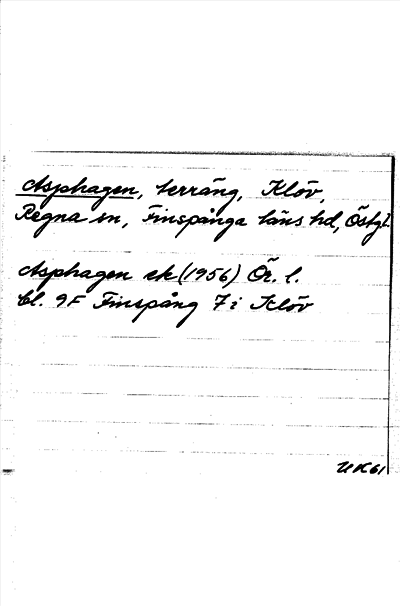 Asphagen, terräng, Klöv,
Regna sn, Finspånga läns hd, Östgl.
Asphagen ek (1956) Ör. l.
bl. 9F Finspång 7 i Klöv
UK61